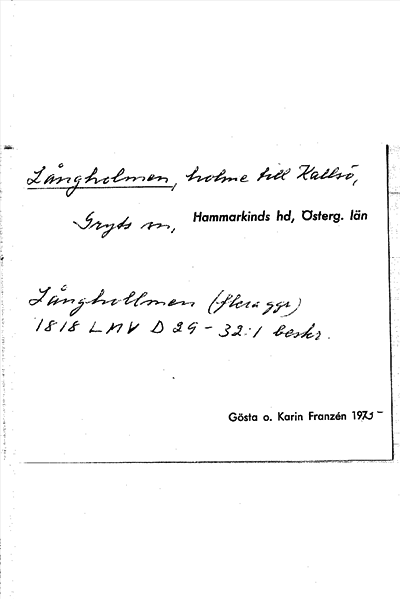 Långholmen, holme till Kallsö,
Gryts sn, Hammarkinds hd, Österg. län
Långhollmen (flera ggr)
1818 LMV D 29-32:1 beskr.
Gösta o. Karin Franzén 1975